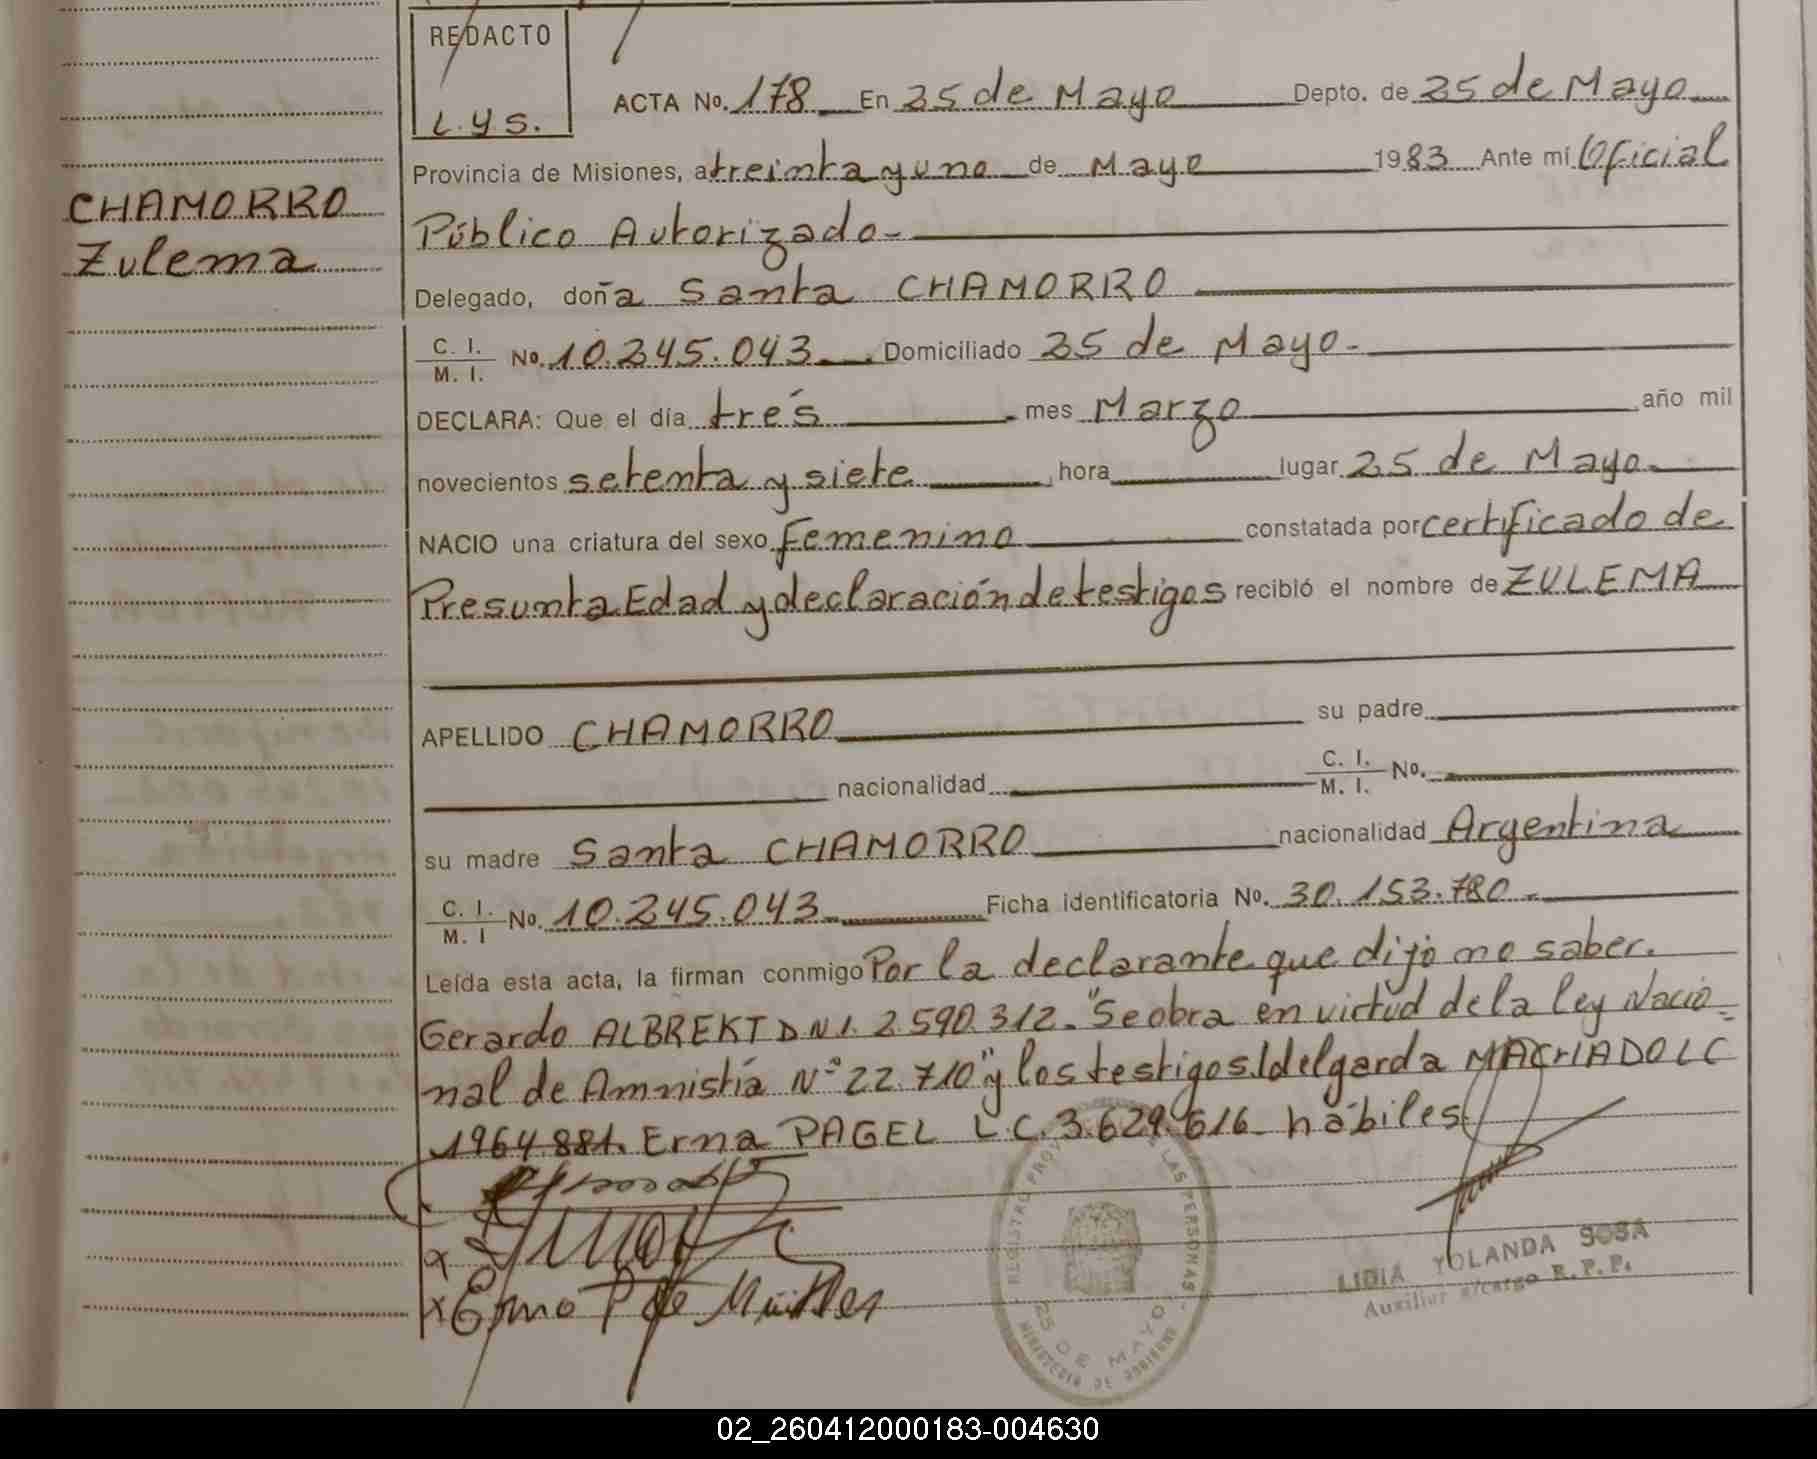 REDACTO
L.y S.
ACTA No. 178 En 25 de Mayo Depto. de 25 de Mayo
Provincia de Misiones, a treinta y uno de Mayo 1983 Ante mí Oficial
Público Autorizado-
CHAMORRO
Zulema
Delegado, doña Santa CHAMORRO
C. I. / M. I. No. 10.245.043 Domiciliado 25 de Mayo-
DECLARA: Que el día trés mes Marzo año mil
novecientos setenta y siete hora lugar 25 de Mayo
NACIO una criatura del sexo Femenino constatada por certificado de
Presunta Edad y declaración de testigos recibió el nombre de ZULEMA
APELLIDO CHAMORRO su padre
nacionalidad C. I. / M. I. No.
su madre Santa CHAMORRO nacionalidad Argentina
C. I. / M. I No. 10.245.043 Ficha identificatoria No. 30.153.780-
Leída esta acta, la firman conmigo Por la declarante que dijo no saber.
Gerardo ALBREKT D N I. 2.590.312. "Se obra en virtud de la ley Nacio=
nal de Amnistía N° 22.710" y los testigos Idelgarda MACHADO LC
1964.881. Erna PAGEL L C. 3.629.616 hábiles
x
x Erna P de
REGISTRO PROV LAS PERSONAS
25 DE MAYO
MINISTERIO DE GOBIERNO
LIDIA YOLANDA SOSA
Auxiliar a/cargo R. P. P.
02_260412000183-004630